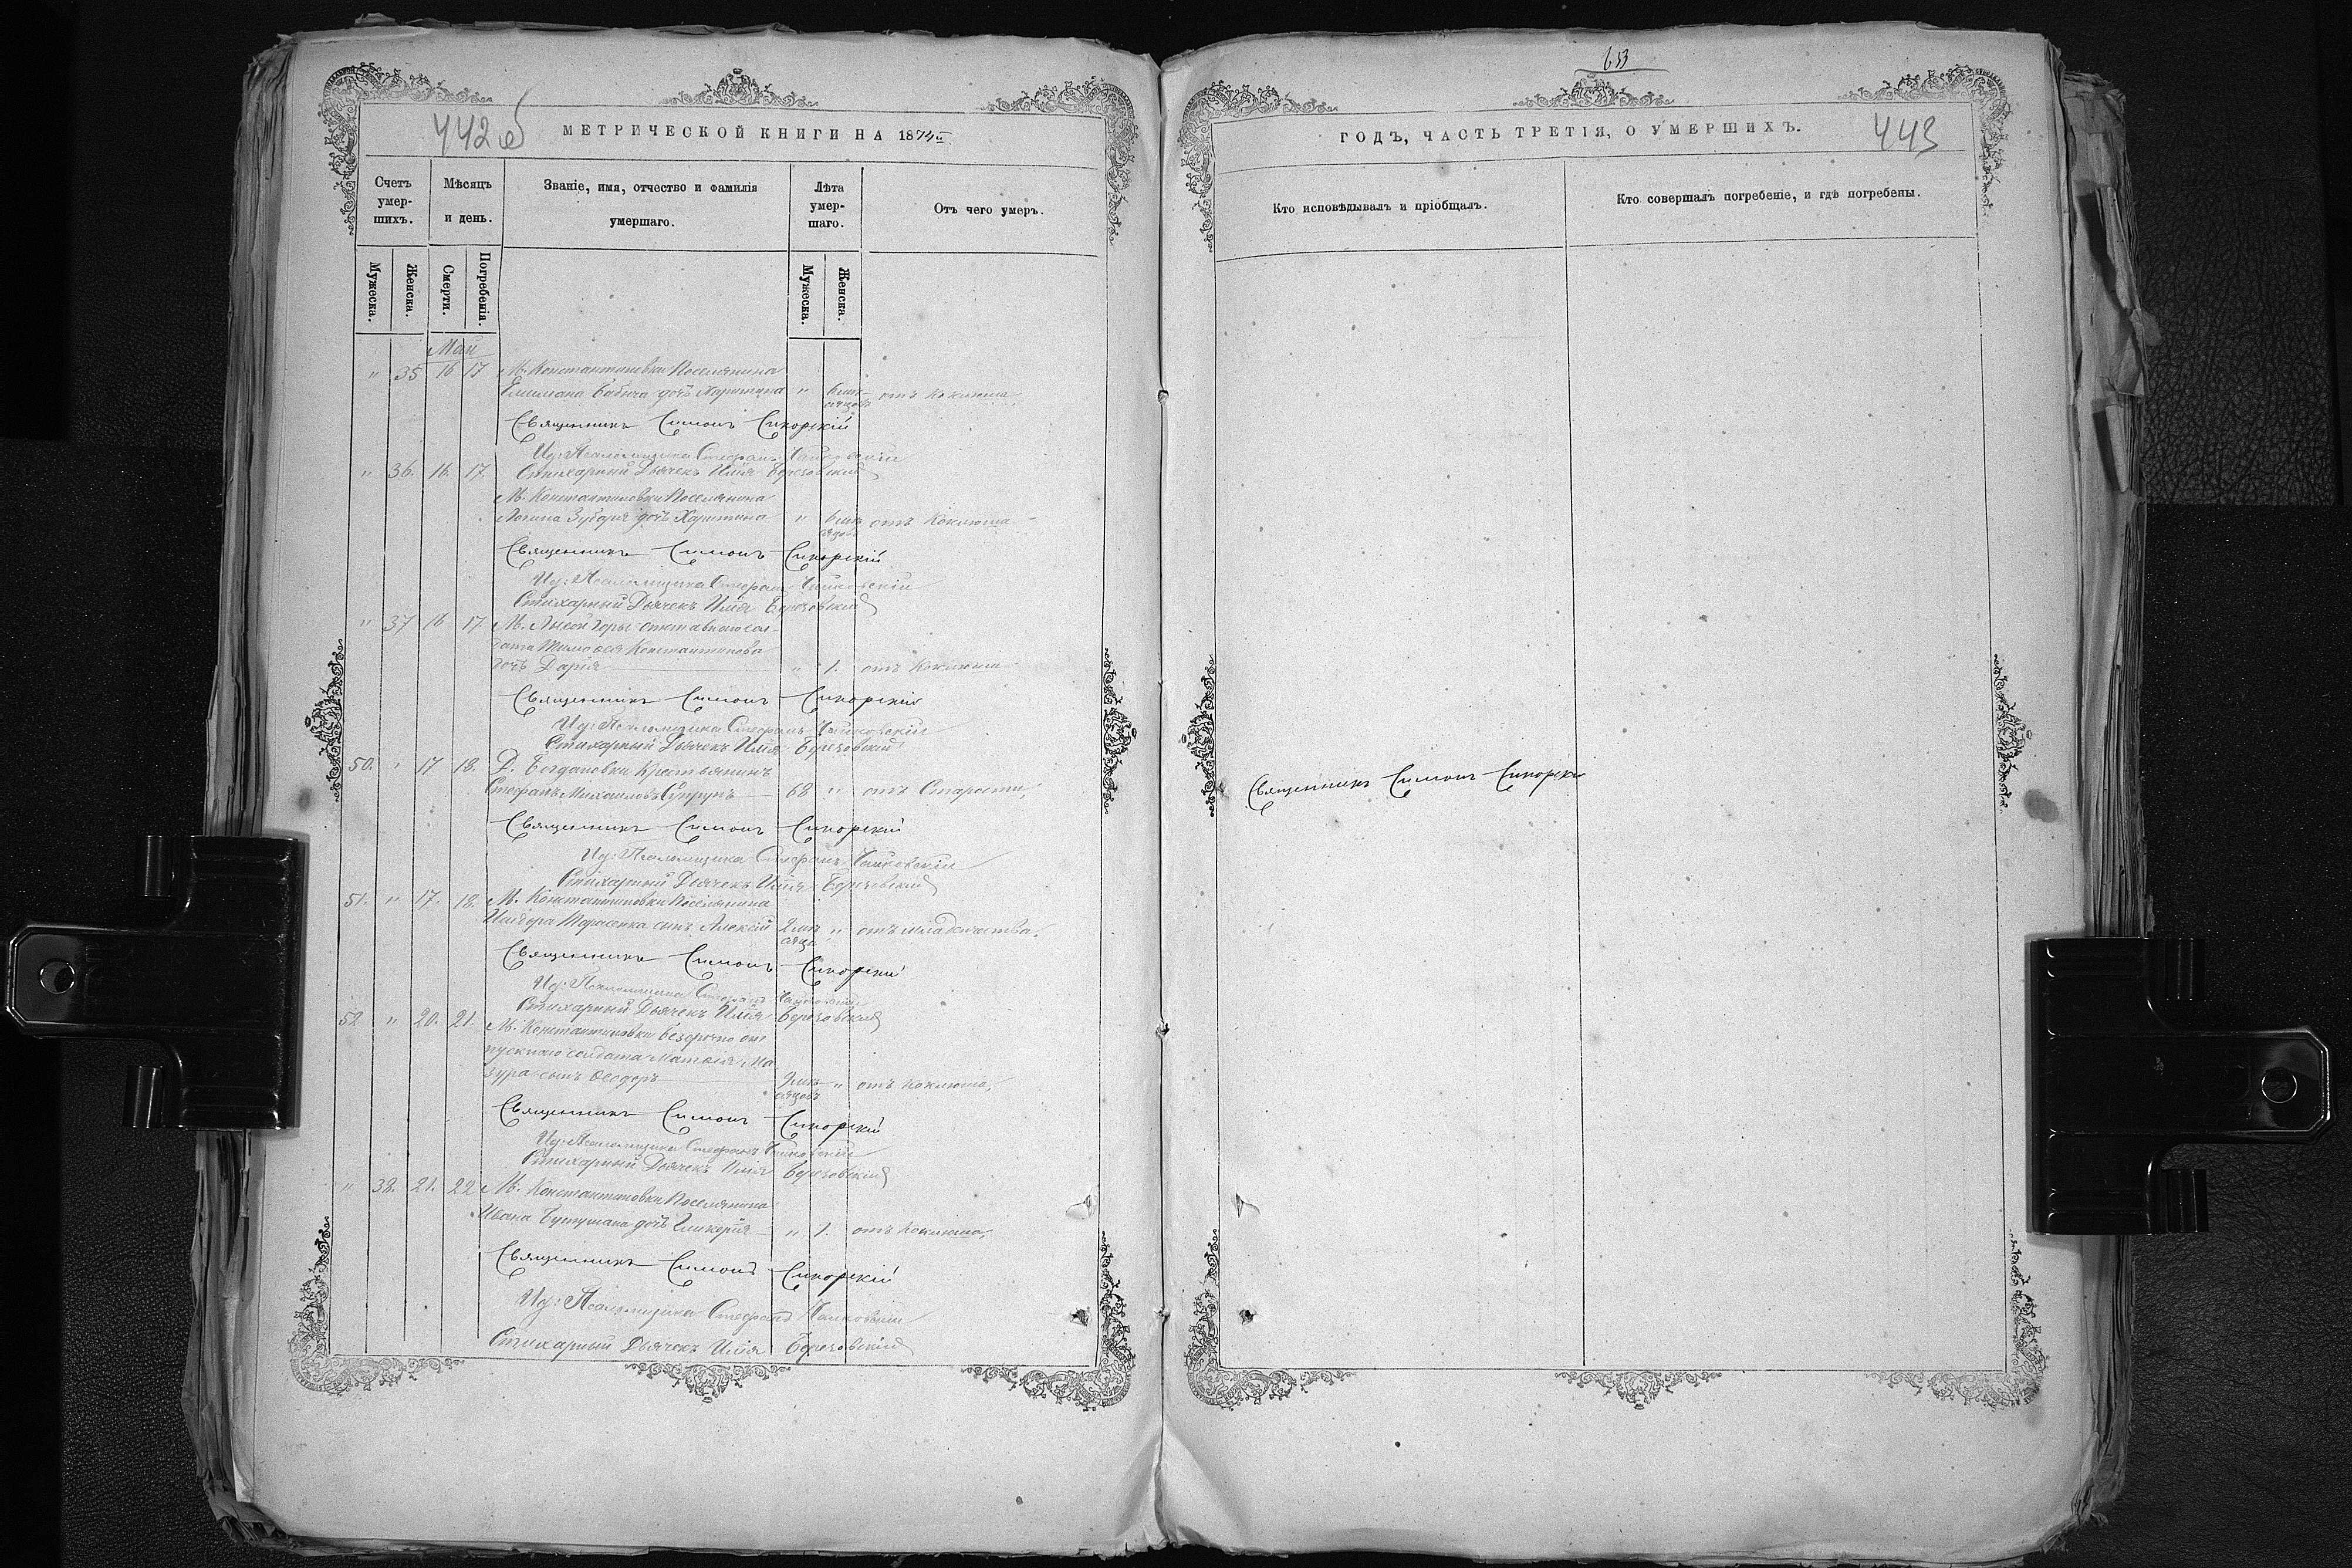 442 об
МЕТРИЧЕСКОЙ КНИГИ НА 1874й
Счетъ умер-шихъ.
Мѣсяцъ и день.
Званіе, имя, отчество и фамилія умершаго.
Лѣта умер-шаго.
Отъ чего умеръ.
Мужеска. Женска. Смерти. Погребенія. Мужеска. Женска.
Май
" 35 16 17 М. Константиновки Поселянина
Бабича дочь Харитина " 6 мѣ-сяцовъ отъ коклюша
Священникъ Симонъ Сикорскій
Ид: Псаломщика Стефанъ Чайковскій
" 36. 16. 17. Стихарный Дьячекъ Илія Березовскій
М. Константиновки Поселянина
Логина Зубаря дочь Харитина " 6 мѣ-сяцовъ отъ коклюша
Священникъ Симонъ Сикорскій
Ид: Псаломщика Стефанъ Чайковскій
Стихарный Дьячекъ Илія Березовскій
" 37 16 17. М. Лысой горы отставного сол-
дата Тимофея Константинова
дочь Дарія " 1. отъ коклюша
Священникъ Симонъ Сикорскій
Ид: Псаломщика Стефанъ Чайковскій
Стихарный Дьячекъ Илія Березовскій
50. " 17 18. Д. Богдановки Крестьянинъ
Стефанъ Михаиловъ Супрунъ 68 " отъ Старости,
Священникъ Симонъ Сикорскій
Ид: Псаломщика Стефанъ Чайковскій
Стихарный Дьячекъ Илія Березовскій
51. " 17. 18. М. Константиновки Поселянина
Исидора Тарасенка сынъ Алексій 2 мѣ-сяца " отъ младенчества.
Священникъ Симонъ Сикорскій
Ид: Псаломщика Стефанъ Чайковскій
Стихарный Дьячекъ Илія Березовскій
52 " 20. 21. М. Константиновки безсрочно от
пускнаго солдата Матвѣя Ма
зура сынъ Ѳеодоръ 9 мѣ-сяцовъ " отъ коклюша,
Священникъ Симонъ Сикорскій
Ид: Псаломщика Стефанъ Чайковскій
Стихарный Дьячекъ Илія Березовскій
" 38. 21. 22 М. Константиновки Поселянина
Ивана дочь Гликерія " 1. отъ коклюша,
Священникъ Симонъ Сикорскій
Ид: Псаломщика Стефанъ Чайковскій
Стихарный Дьячекъ Илія Березовскій
653
ГОДЪ, ЧАСТЬ ТРЕТІЯ, О УМЕРШИХЪ.
443
Кто исповѣдывалъ и пріобщалъ.
Кто совершалъ погребеніе, и гдѣ погребены.
Священникъ Симонъ Сикорскій